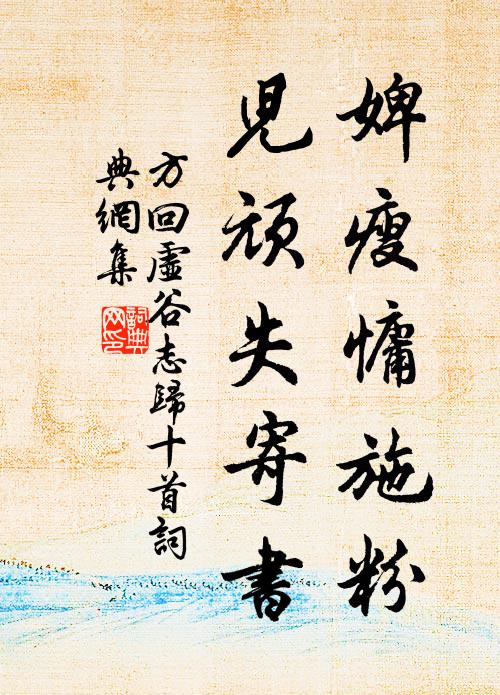 婢瘦慵施粉
兒頑失寄書
方回虛谷志歸十首詞
典網集
詞典
网印